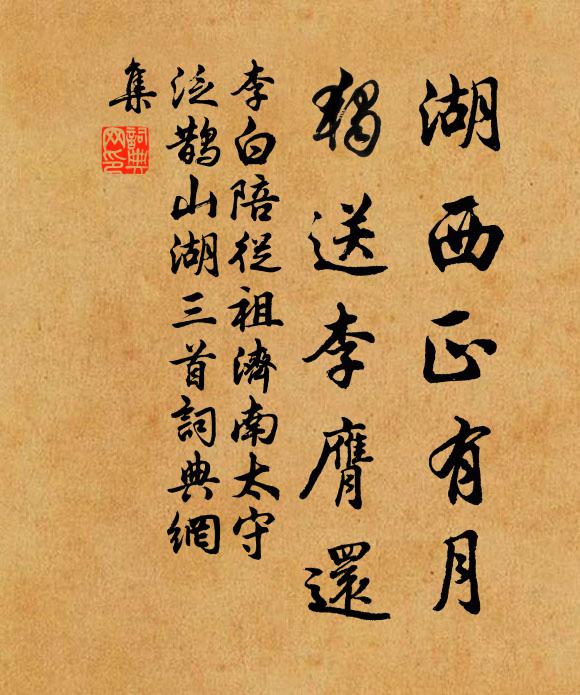 湖西正有月
獨送李膺還
李白陪從祖濟南太守
泛鵲山湖三首詞典網
集
詞典网印